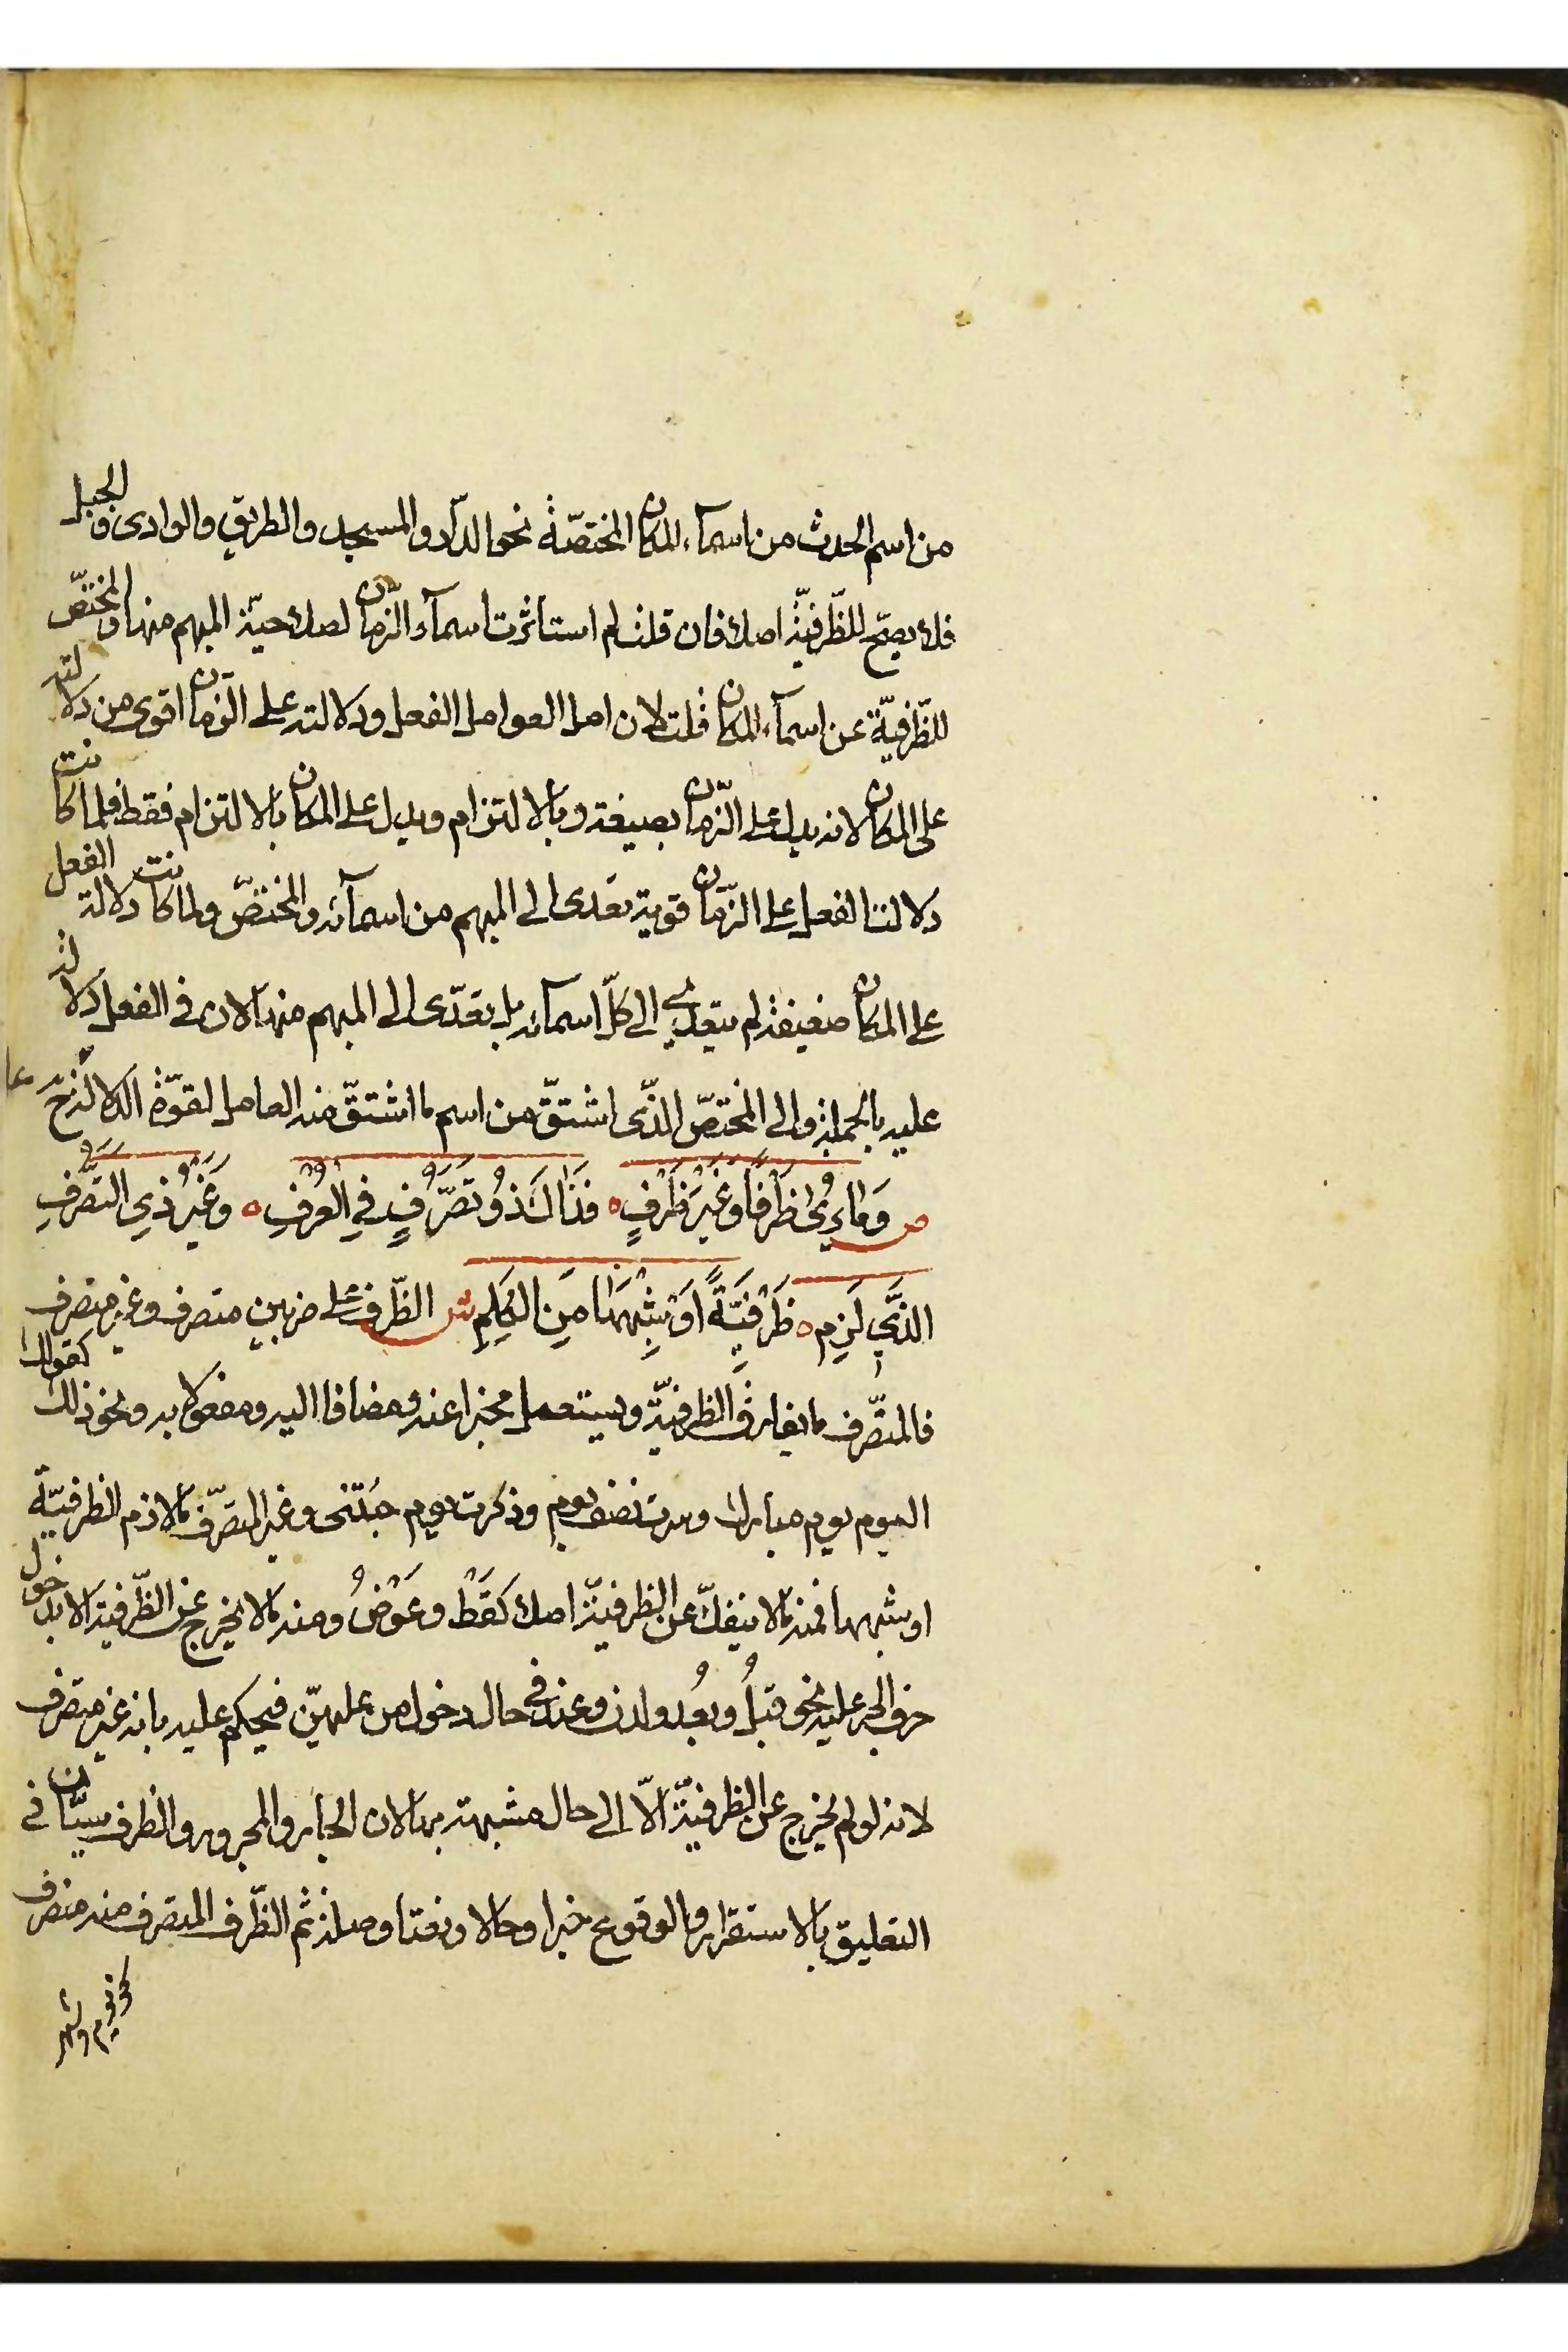 من اسم الحدث من اسمآء المكان المختصّة نحو الدّار والمسجد والطريق والوادى والجبل
فلا يصحّ للظّرفيّة اصلا فان قلت لم استأثرت اسمآء الزّمان لصلاحيّة المبهم منها والمختصّ
للظّرفيّة عن اسمآء المكان قلت لان اصل العوامل الفعل ودلالته على الزّمان اقوى من دلالته
على المكان لانه يدل على الزّمان بصيغته وبالالتزام ويدل على المكان بالالتزام فقط فلما كانت
دلالة الفعل على الزّمان قوية تعدى الى المبهم من اسمآئه والمختصّ ولما كانت دلالة الفعل
على المكان ضعيفة لم يتعدى الى كلّ اسمآئه بل يتعدّى الى المبهم منها لان فى الفعل دلالة
عليه بالجملة والى المختصّ الذّى اشتقّ من اسم ما اشتقّ منه العامل لقوّة الدلالة ح عا
ص وَمَا يُرى ظَرْفًا وَغَيْرَ ظَرْفٍ ه فَذَاكَ ذُو تَصَرُّفٍ فِي الْعُرْفِ ه وَغَيْرُ ذِي التَّصَرُّفِ
الَّذِي لَزِم ه ظَرْفِيَّةً اَوْ شِبْهَهَا مِنَ الْكَلِمِ ش الظّرف على ضربين متصرف وغير متصرف
فالمتصّرف ما يفارق الظرفيّة ويستعمل مخبرا عنه ومضافا اليه ومفعولا به ونحو ذلك كقولك
اليوم يوم مبارك وسرت نصف يوم وذكرت يوم جئتنى وغير المتصرّف ما لازم الظرفيّة
او شبهها فمنه ما لا ينفكّ عن الظرفيّة اصلا كقَطْ وعَوْضُ ومنه ما لا يخرج عن الظّرفية الا بدخول
حرف الجر عليه نحو قبلُ وبعُد ولدن وعند فى حال دخول من عليهنّ فيحكم عليه بانه غير متصرف
لانه لو لم يخرج عن الظرفيّة الّا الى حال مشبهة بها لان الجار والمجرور والظرف سيّان فى
التعليق بالاستقرار والوقوع خبرا وحالا ونعتا وصلة ثم الظّرف المتصرف منه منصرف
نحو يوم وشهر